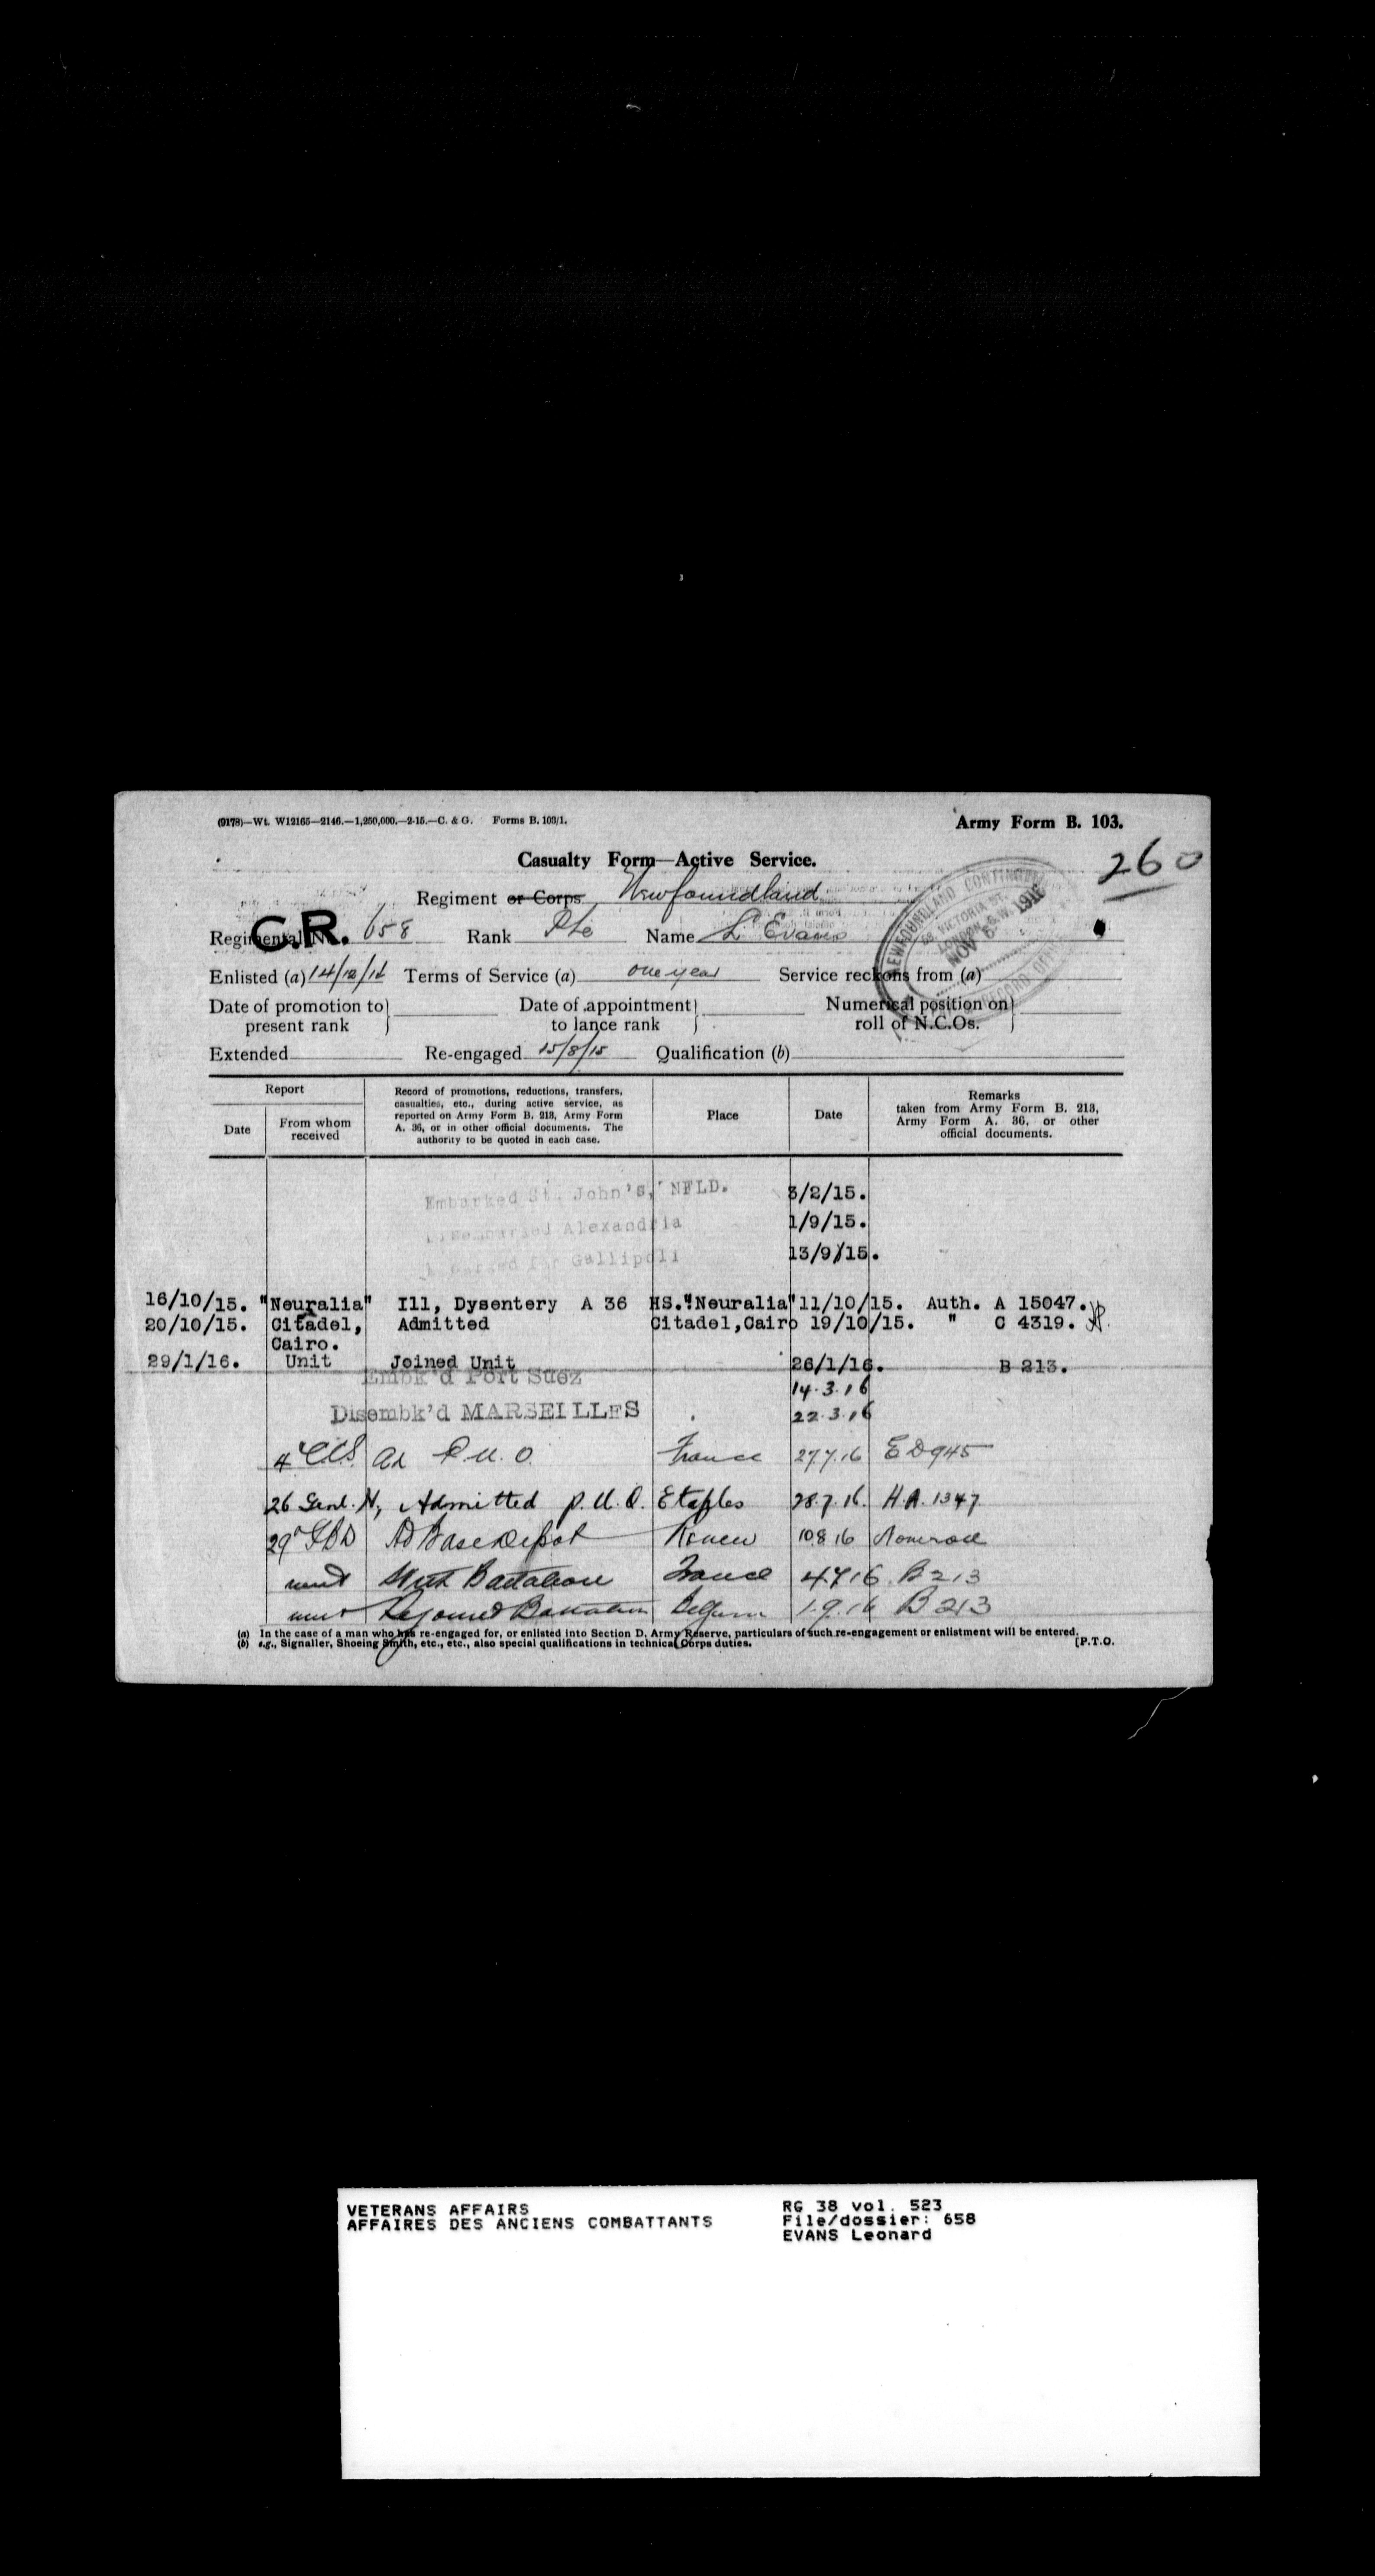 (9178)—Wt. W12165—2146.—1,250,000.—2-15.—C. & G. Forms B. 103/1.
Army Form B. 103.
260
Casualty Form—Active Service.
Regiment or Corps Newfoundland
C.R.
Regimental No. 658 Rank Pte Name L Evans
NEWFOUNDLAND CONTINGENT
58, VICTORIA ST.
LONDON, S.W.
NOV 6 1916
RECORD OFFICE
Enlisted (a) 14/12/14 Terms of Service (a) one year Service reckons from (a)
Date of promotion to present rank Date of appointment to lance rank Numerical position on roll of N.C.Os.
Extended Re-engaged 15/8/15 Qualification (b)
Report
Date
From whom received
Record of promotions, reductions, transfers, casualties, etc., during active service, as reported on Army Form B. 213, Army Form A. 36, or in other official documents. The authority to be quoted in each case.
Place
Date
Remarks taken from Army Form B. 213, Army Form A. 36, or other official documents.
Embarked St. John's, NFLD. 3/2/15.
Disembarked Alexandria 1/9/15.
Embarked for Gallipoli 13/9/15.
16/10/15. "Neuralia" Ill, Dysentery A 36 HS."Neuralia" 11/10/15. Auth. A 15047.
20/10/15. Citadel, Cairo. Admitted Citadel,Cairo 19/10/15. " C 4319.
29/1/16. Unit Joined Unit 26/1/16. B 213.
Embk'd Port Suez 14.3.16
Disembk'd MARSEILLES 22.3.16
4 CCS. Ad P.U.O. France 27.7.16 ED945
26 Genl. H, Admitted P.U.O. Etaples 28.7.16. H.A. 1347
29 IBD Ad Base Depot Rouen 10.8.16 Nom roll
unit With Battalion France 4.7.16. B213
unit Rejoined Battalion Belgium 1.9.16 B213
(a) In the case of a man who has re-engaged for, or enlisted into Section D. Army Reserve, particulars of such re-engagement or enlistment will be entered.
(b) e.g., Signaller, Shoeing Smith, etc., etc., also special qualifications in technical Corps duties.
[P.T.O.
VETERANS AFFAIRS RG 38 vol. 523
AFFAIRES DES ANCIENS COMBATTANTS File/dossier: 658
EVANS Leonard